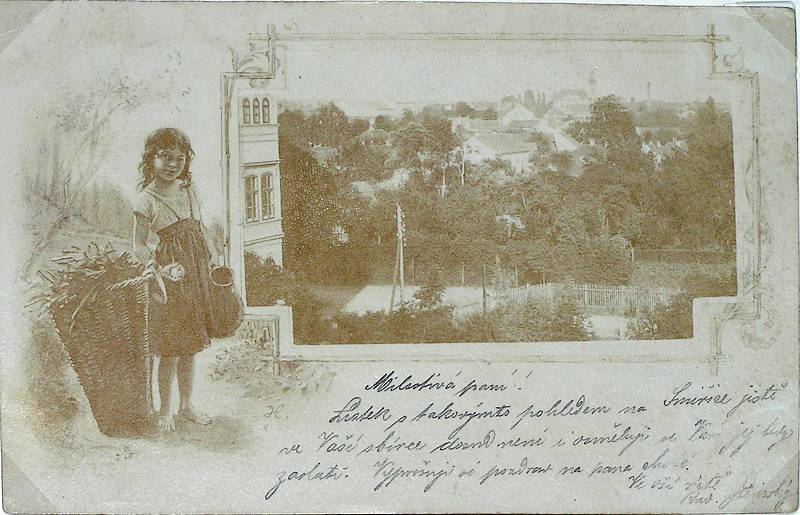 Milostivá paní!
Lístek s takovýmto pohledem na Smiřice jistě
ve Vaší sbírce dosud není i osměluji se Vám jej
zaslati. Vyprošuji si pozdrav na pana
Ve vší úctě